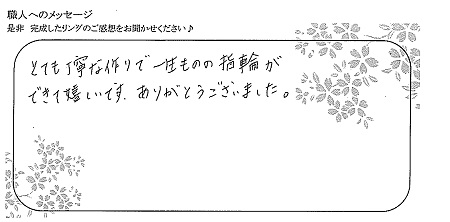 職人へのメッセージ
是非 完成したリングのご感想をお聞かせください♪
とても丁寧な作りで一生ものの指輪が
できて嬉しいです。ありがとうございました。